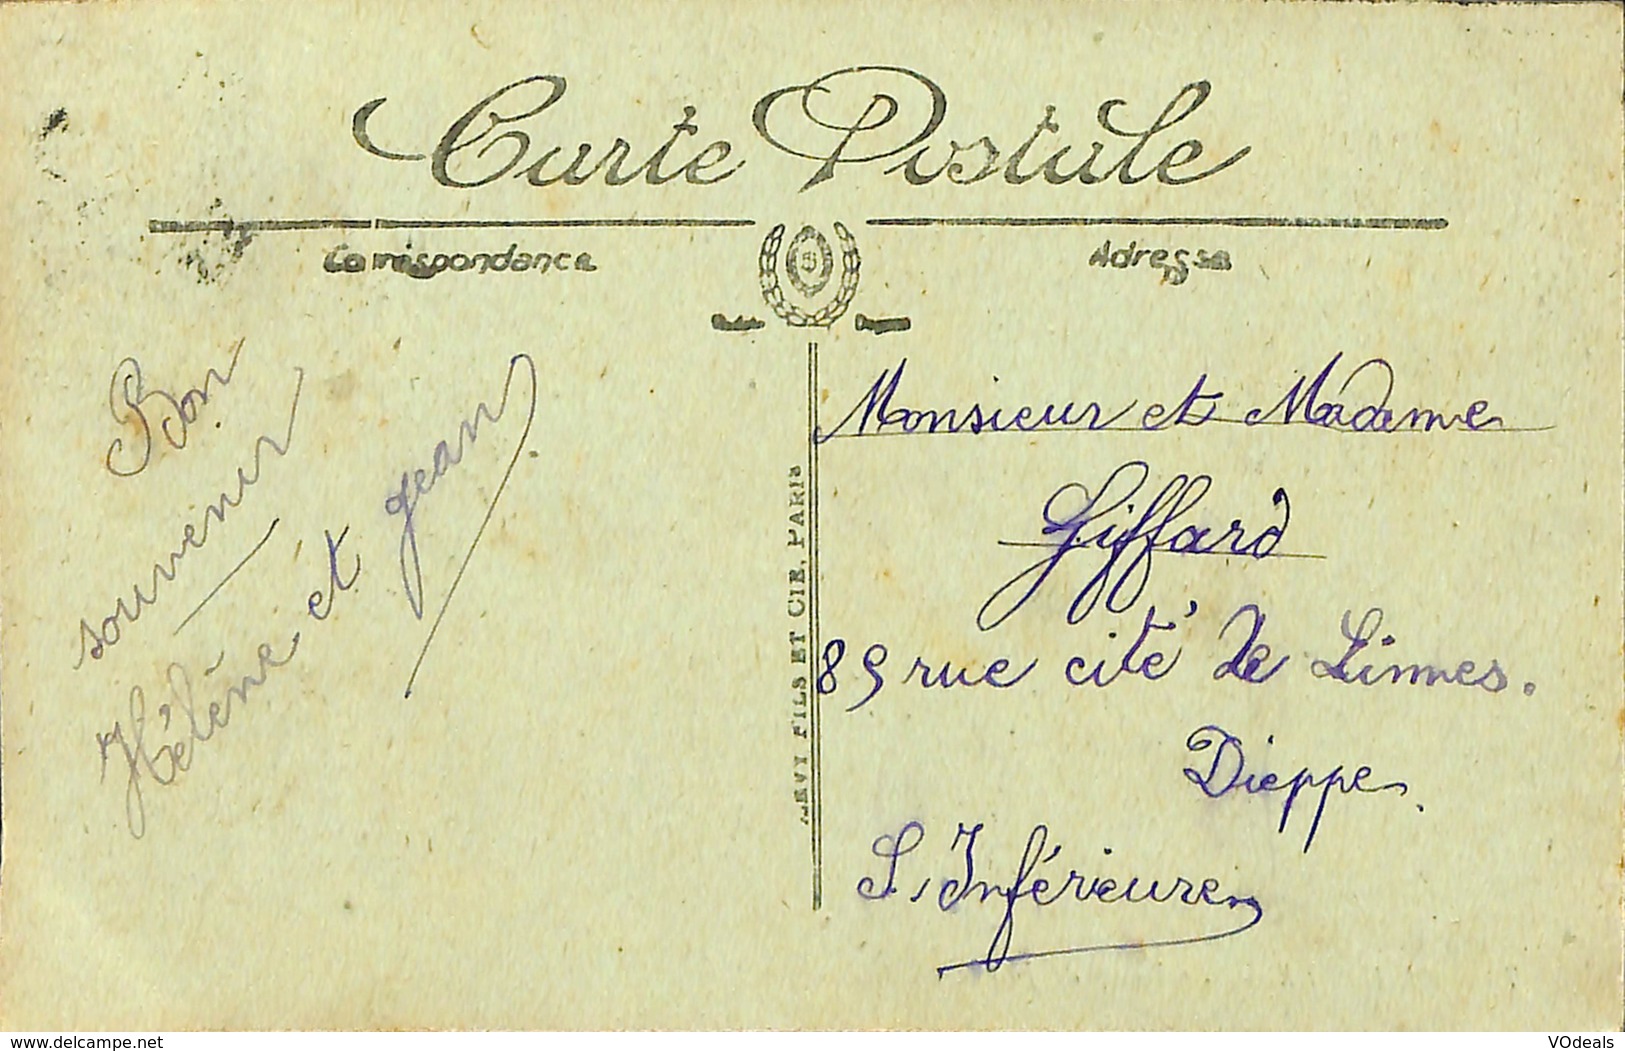 Carte Postale
Correspondance
Adresse
Bon
souvenir
Hélène et Jean
LEVY FILS ET CIE, PARIS
Monsieur et Madame
Giffard
89 rue cité de Limes.
Dieppe.
S. Inférieure
www.delcampe.net
VOdeals